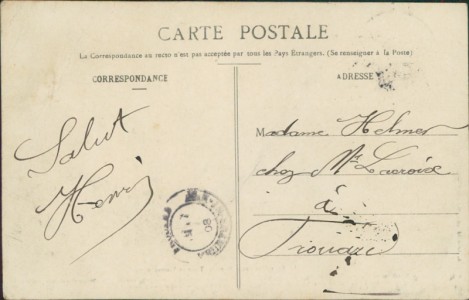 CARTE POSTALE
La Correspondance au recto n'est pas acceptée par tous les Pays Étrangers. (Se renseigner à la Poste)
CORRESPONDANCE
ADRESSE
Salut
Henri
Madame Helmer
chez Mr Lacroix
à